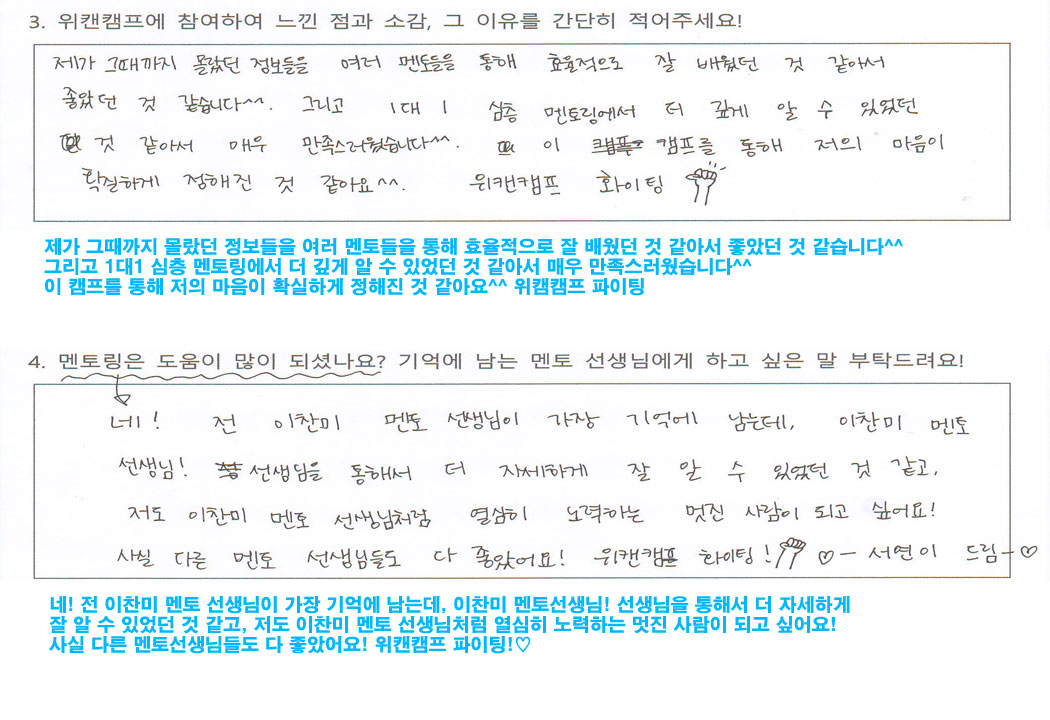 3. 위캔캠프에 참여하여 느낀 점과 소감, 그 이유를 간단히 적어주세요!
제가 그때까지 몰랐던 정보들을 여러 멘토들을 통해 효율적으로 잘 배웠던 것 같아서
좋았던 것 같습니다^^. 그리고 1대1 심층 멘토링에서 더 깊게 알 수 있었던
것 같아서 매우 만족스러웠습니다^^. 이 캠프를 통해 저의 마음이
확실하게 정해진 것 같아요^^. 위캔캠프 화이팅
제가 그때까지 몰랐던 정보들을 여러 멘토들을 통해 효율적으로 잘 배웠던 것 같아서 좋았던 것 같습니다^^
그리고 1대1 심층 멘토링에서 더 깊게 알 수 있었던 것 같아서 매우 만족스러웠습니다^^
이 캠프를 통해 저의 마음이 확실하게 정해진 것 같아요^^ 위캠캠프 파이팅
4. 멘토링은 도움이 많이 되셨나요? 기억에 남는 멘토 선생님에게 하고 싶은 말 부탁드려요!
네! 전 이찬미 멘토 선생님이 가장 기억에 남는데, 이찬미 멘토
선생님! 선생님을 통해서 더 자세하게 잘 알 수 있었던 것 같고,
저도 이찬미 멘토 선생님처럼 열심히 노력하는 멋진 사람이 되고 싶어요!
사실 다른 멘토 선생님들도 다 좋았어요! 위캔캠프 화이팅! ♡ - 서연이 드림 - ♡
네! 전 이찬미 멘토 선생님이 가장 기억에 남는데, 이찬미 멘토선생님! 선생님을 통해서 더 자세하게
잘 알 수 있었던 것 같고, 저도 이찬미 멘토 선생님처럼 열심히 노력하는 멋진 사람이 되고 싶어요!
사실 다른 멘토선생님들도 다 좋았어요! 위캔캠프 파이팅!♡